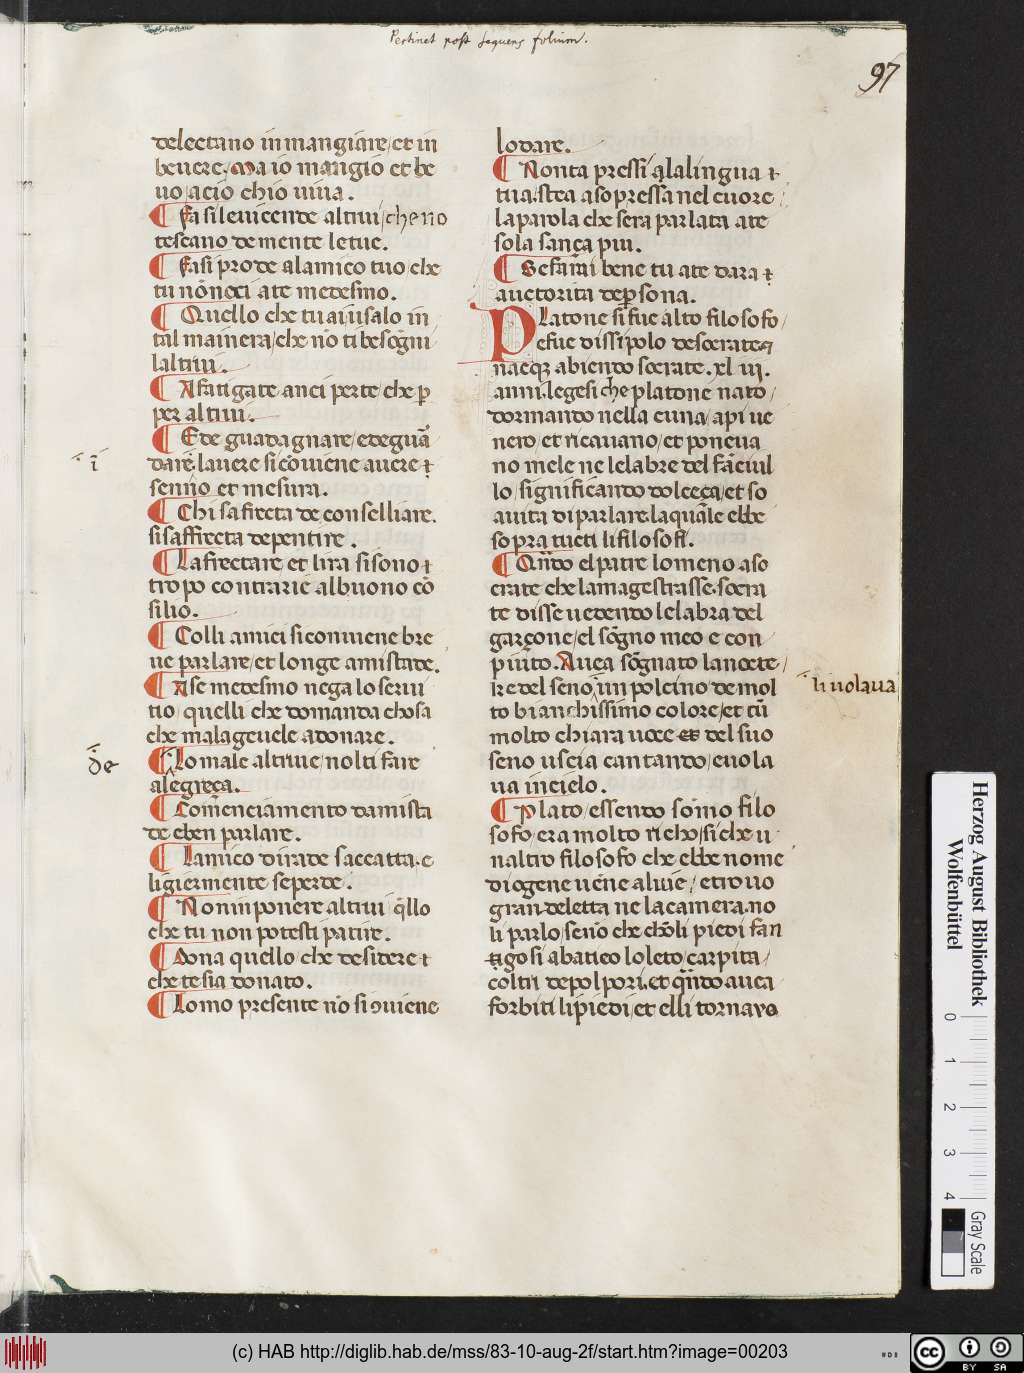 Pertinet post sequens folium.
97
delectano in mangiare/et in
beuere. Ma io mangio et be
uo/acio chio uiua.
¶ Fa si le uicende altrui/che no
te scano de mente le tue.
¶ Fa si prode al amico tuo/che
tu nō noci a te medesimo.
¶ Quello che tu ai/usalo in
tal mainera/che nō ti besōgni
laltrui.
¶ Afatigate anci per te che p̄
per altrui.
¶ E de guadagnare/e de guā
dare. lauere si cōuiene auere ⁊
senno et mesura.
¶ Chi safrecta de conselliare.
si saffrecta de pentire.
¶ Lafrectare et lira si sono ⁊
tropo contrarie al buono cō
silio.
¶ Colli amici si conuiene bre
ue parlare/et longe amistade.
¶ A se medesmo nega lo serui
tio/quelli che domanda chosa
che malageuele a donare.
¶ Lo male altruie/nolti fare
alegreça.
¶ Comēnciamento damista
de e ben parlare.
¶ Lamico dirade saccatta. e
ligiermente se perde.
¶ Non inponere altrui q̄llo
che tu non potesti patire.
¶ Dona quello che desidere ⁊
che te sia donato.
¶ Lomo presente nō si ɔuiene
ī
de
lodare.
¶ Non ta pressi a la lingua ⁊
tua. stea a so pressa nel cuore
la parola che sera parlata a te
sola sança piu.
¶ Se farai bene tu a te dara ⁊
auctorita de p̄sona.
Platone si fue alto filosofo/
e fue dissipolo de socrate.
nacq; abiendo socrate. xl iij.
anni. legesi che platone nato
dormando nella cuna/api ue
nero/et ricauano/et poneua
no mele ne le labre del fanciul
lo/significando dolceça/et so
auita di parlare. la quale ebbe
sopra tucti li filosofi.
¶ Qn̄do el patre lo meno a so
crate che lamagestrasse. socra
te disse uedendo le labra del
garçone/el sōgno meo e con
piuto. Auea sōgnato la nocte/
ke del seno un polcino de mol
to bianchissimo colore/et cū
molto chiara uoce et del suo
seno uscia cantando/e uola
ua in cielo.
li uolaua
¶ Plato/essendo somo filo
sofo/era molto richo/si che u
naltro filosofo che ebbe nome
diogene uēne a luie/e trouo
gran deletta ne la camera. no
li parlo/seno che choli piedi fan
gosi abatico lo leto/carpita/
coltri de polpori. et qn̄do auea
forbiti li piedi/et elli tornaro
Herzog August Bibliothek
Wolfenbüttel
0 1 2 3 4
Gray Scale
(c) HAB http://diglib.hab.de/mss/83-10-aug-2f/start.htm?image=00203
cc BY SA